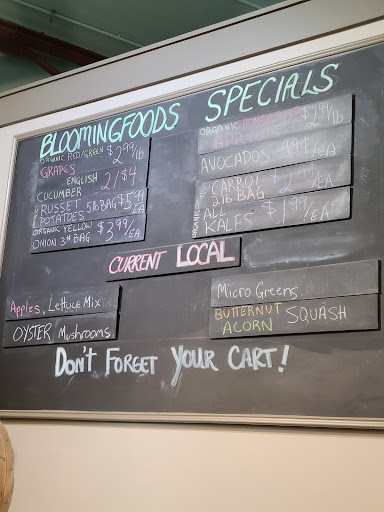 BLOOMINGFOODS SPECIALS
ORGANIC RED/GREEN $2.99/lb
GRAPES
ENGLISH
CUCUMBER 2/$4
RUSSET 5lb BAG $5.99
POTATOES /EA
ORGANIC YELLOW $3.99/EA
ONION 3# BAG
ORGANIC $2.99/lb
AVOCADOS 99¢/EA
2lb BAG $2.99/EA
ORGANIC
ALL $1.99/EA
KALES
CURRENT LOCAL
Apples, Lettuce Mix
OYSTER Mushrooms
Micro Greens
BUTTERNUT SQUASH
ACORN
DON'T FORGET YOUR CART!